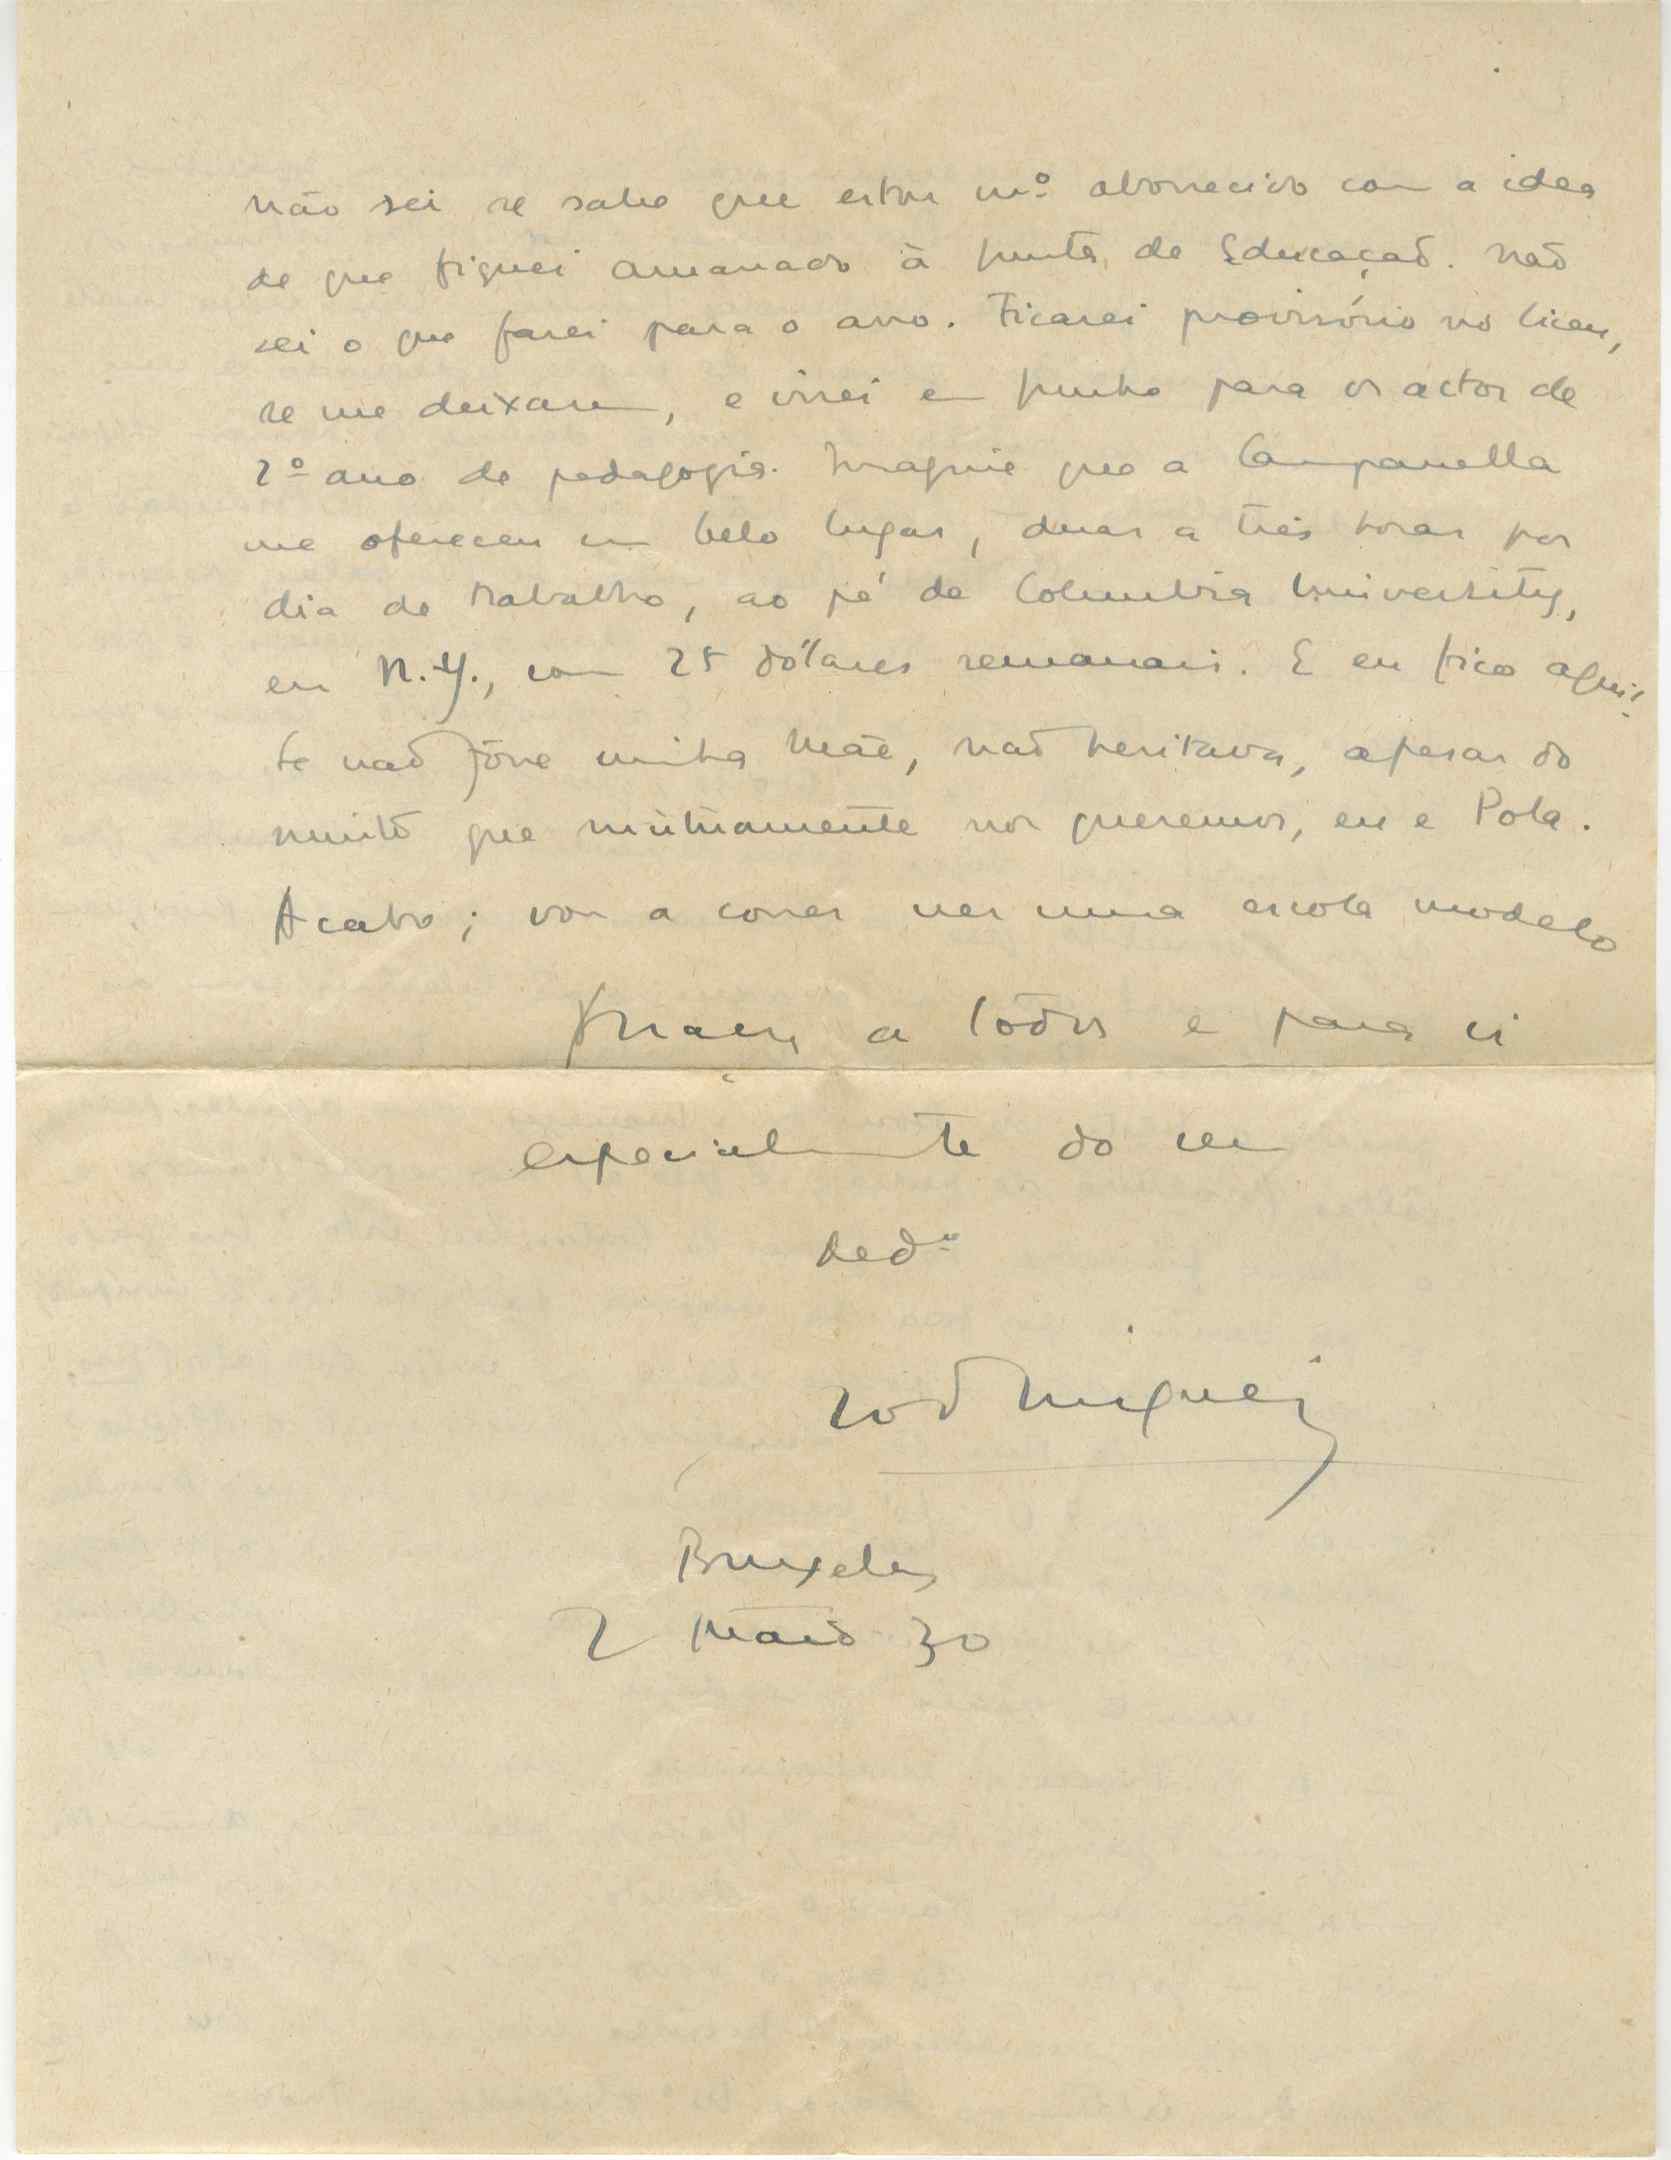 não sei se sabe que estou m.º aborrecido com a idea
de que fiquei amarrado à Junta de Educação. Não
sei o que farei para o ano. Ficarei provisório no liceu,
se me deixarem, e virei em Junho para os actos de
2º ano de pedagogia. Imagine que a Campanella
me ofereceu um belo lugar, duas a três horas por
dia de trabalho, ao pé da Columbia University,
em N.Y., com 25 dólares semanais. E eu fico aqui!
Se não fôsse minha Mãe, não hesitava, apesar do
muito que mùtuamente nos queremos, eu e Pola.
Acabo; vou a correr ver uma escola modelo
a todos e para si
especialmente do seu
Ded.º
Rod Miguéis
Bruxelas
2 Maio 30